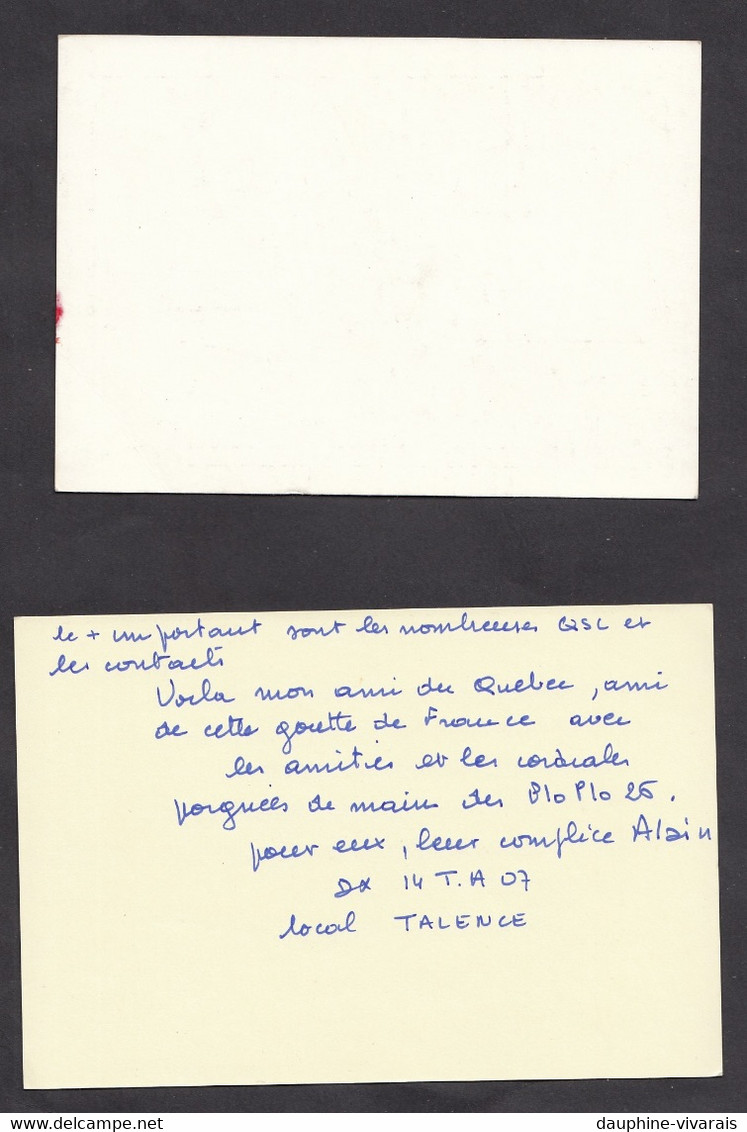 le + important sont les nombreuses QSL et
les contacts
Voila mon ami du Quebec, ami
de cette goutte de France avec
les amitiés et les cordiales
poignées de main des Plo Plo 25.
pour eux, leur complice Alain
14 T.A 07
local TALENCE
dauphine-vivarais